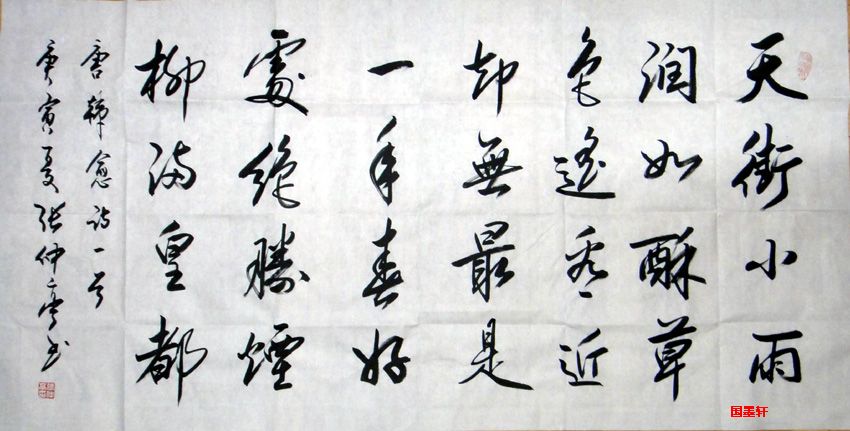 天街小雨
润如酥草
色遙看近
却無最是
一年春好
處絶勝煙
柳满皇都
唐韩愈诗一首
庚寅夏张仲亭书
国墨轩